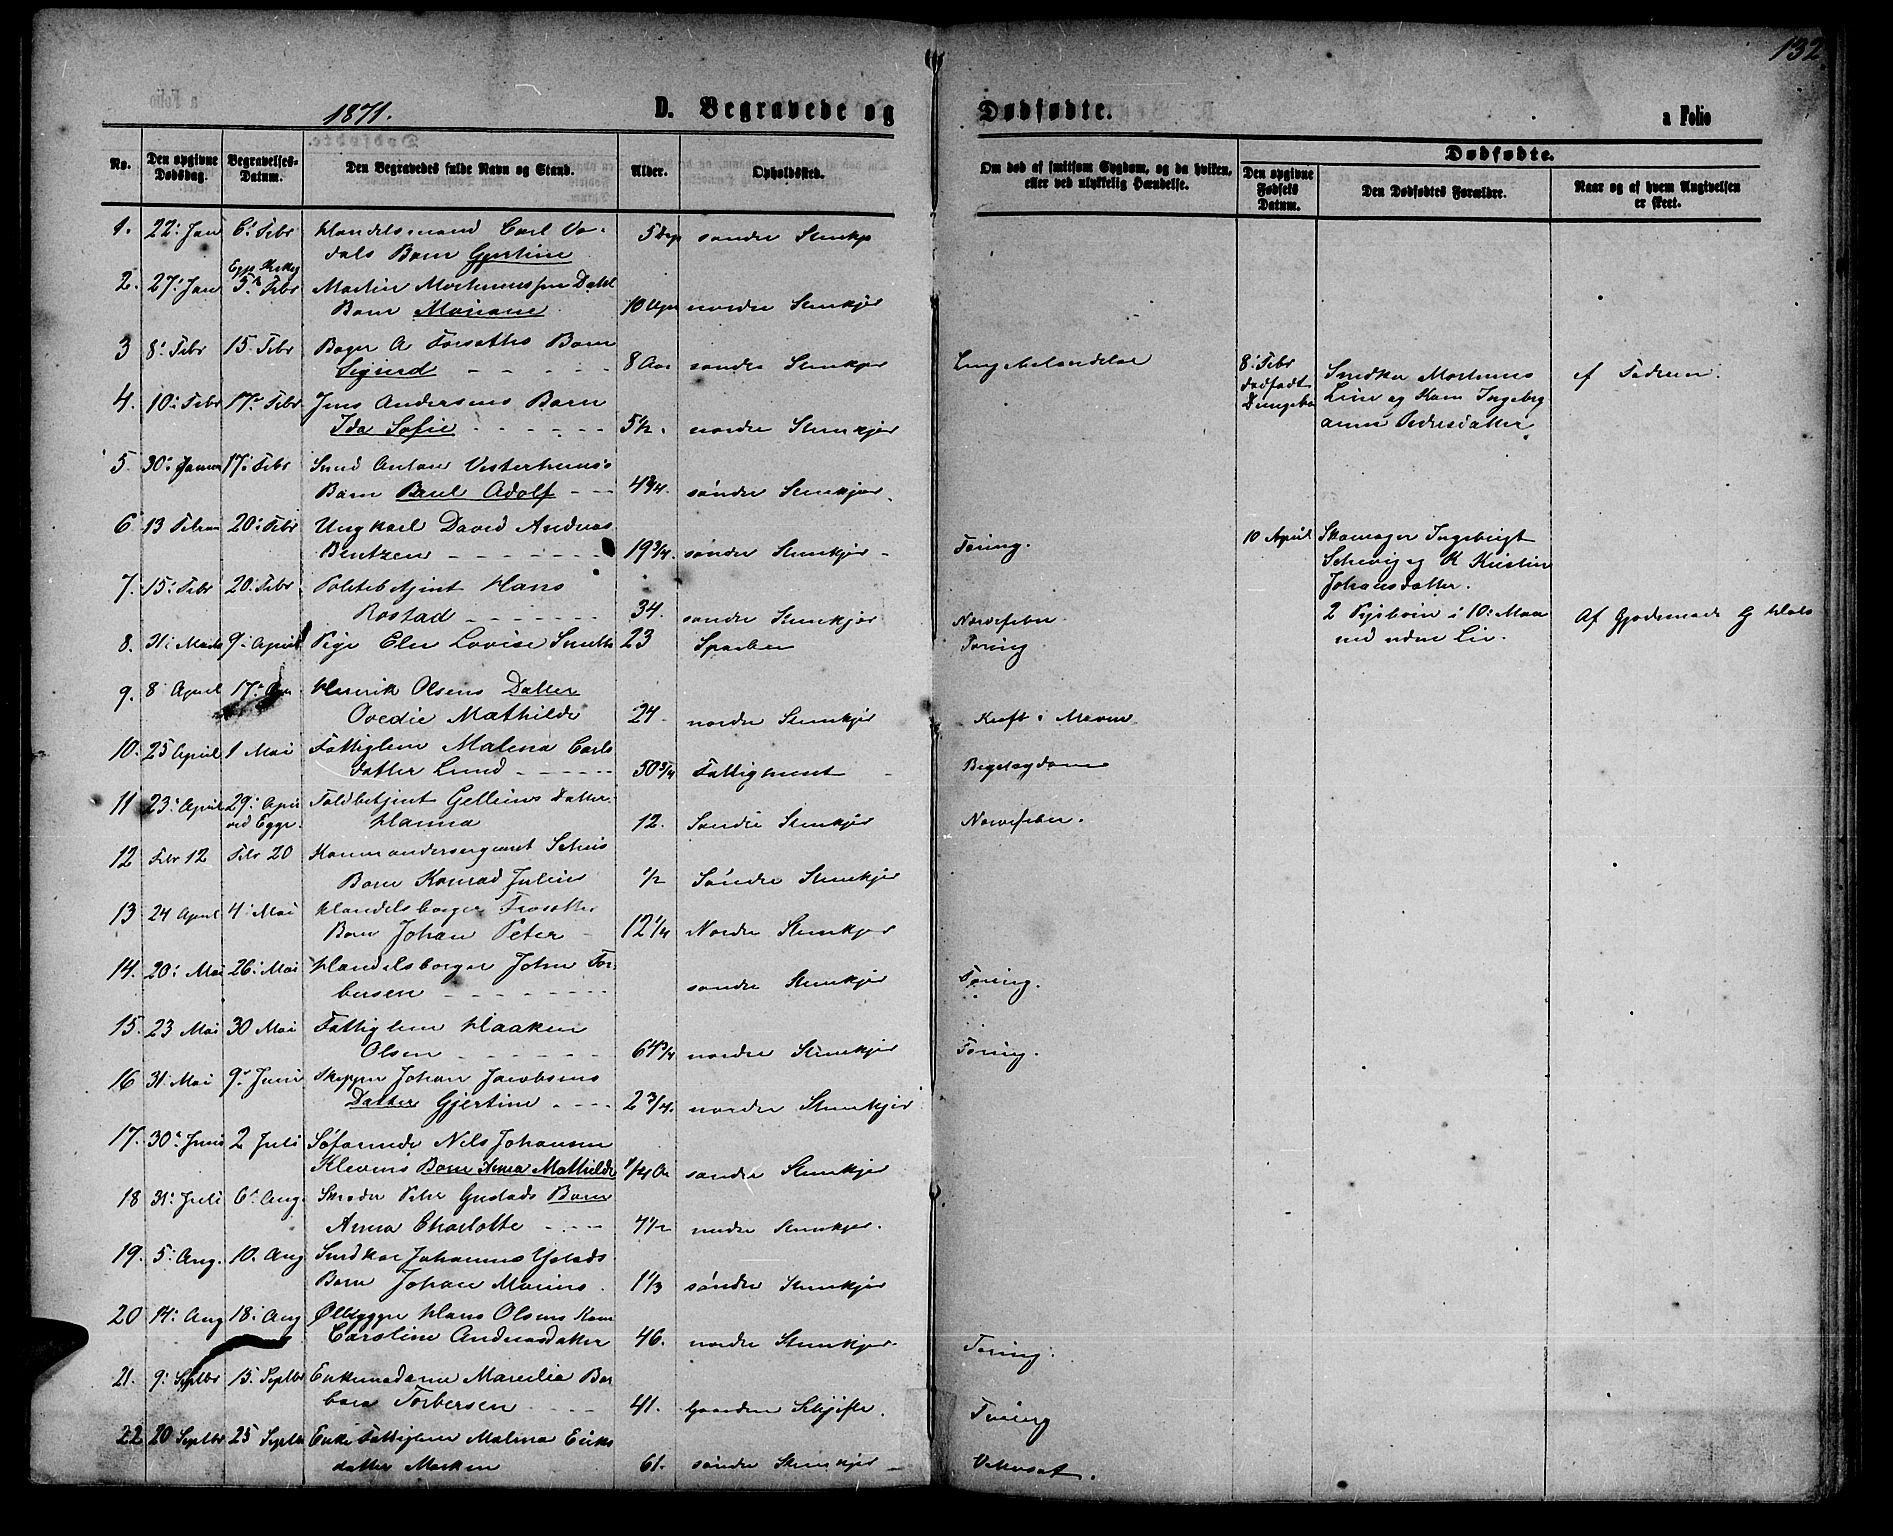 132.
1871. D. Begravede og Dødfødte. a Folio
No. Den opgivne Dødsdag. Begravelses-Datum. Den Begravedes fulde Navn og Stand. Alder. Opholdssted. Om død af smitsom Sygdom, og da hvilken, eller ved ulykkelig Hændelse. Dødfødte.
Den opgivne Fødsels Datum. Den Dødfødtes Forældre. Naar og af hvem Angivelsen er skeet.
1. 22: Jan 6: Febr Handelsmand Carl Vo-
dals Barn Gjertine 5 sondre Stenkjr
2. 27: Jan 5: Febr Martin Mortensen Dahl
Barn Mariane 10 Uger nordre Stenkjer
3 8: Febr 15 Febr Boger A Forseths Barn
Sigurd 8 Aar sondre Stenkjer
8: Febr dødfødt Snedker Mortinus Lein og Kone Ingeberg anna Pedersdatter af Faderen.
4. 10: Febr 17: Febr Jens Andersens Barn
Ida Sofie 5½. nordre Stenkjer
5. 30: 17: Febr Smed Anton
Barn Paul Adolf 4¾. søndre Stenkjær.
6 13 20: Febr Ungkarl David Andreas
Bentzen 19¾. søndre Stenkjer Tæring.
10 April Skomager Ingebrigt
K Kirstin
Johansdatter.
7. 15: Febr 20: Febr Politibetjent Hans
Rostad 34. sondre Stenkjer Nervefeber.
2 Pigebørn i 10: Maa
ned uden Liv. Af Gjødemode G Hals
8. 31: Marts 9: April Pige Elen Lovise Smeths 23 Sparbu Tæring
9. 8 April 17: Henrik Olsens Datter
Ovedie Mathilde 24. nordre Stenkjer Kreft i Maven
10. 25 April 1 Mai Fattiglem Malena Carls
datter Lund 50¾ Fattighuset
11 23: April 29: April ved Egge. Toldbetjent Gelleins Datter
Hanna 12. Sondre Stenkjer Nervefeber.
12 Febr 12 Febr 20 Kommandersergeant
Barn Konrad Julius ½ Søndre Stenkjer
13 24 April 4: Mai Handelsborger
Barn Johan Peter 12¼ Nordre Stenkjer
14. 20: Mai 26: Mai Handelsborger John Tor-
bersen sondre Stenkjer Tæring.
15. 23 Mai 30 Mai Fattiglem Haaken
Olsen 64¾ nordre Stenkjer Tæring.
16 31: Mai 9: Juni Skipper Johan Jacobsens
Datter Gjertine 2¾. nordre Stenkjer
17. 30: Juni 2 Juli Søfarende Nils Johansen
Klevens Barn Anna Mathilde sondre Stenkjer
18 31: Juli 6: Aug. Skræder Peter Gustads Barn
Anna Charlotte nordre Stenkjer.
19. 5: Aug. 10. Aug Snedker Johannes
Barn Johan Marius. 1⅓ søndre Stenkjer
20 14: Aug 18: Aug Ølbrygger Hans Olsens Kone
Caroline Andreasdatter 46. nordre Stenkjer. Tæring.
21. 9: Septbr 15 Septbr Enkemadame Marcilia Bar
bara Torbersen 41. Gaarden Tæring
22 20 Septbr 25 Septbr Enke Fattiglem Malena Eriks
datter Marken 61. søndre Stenkjer Vatersot.